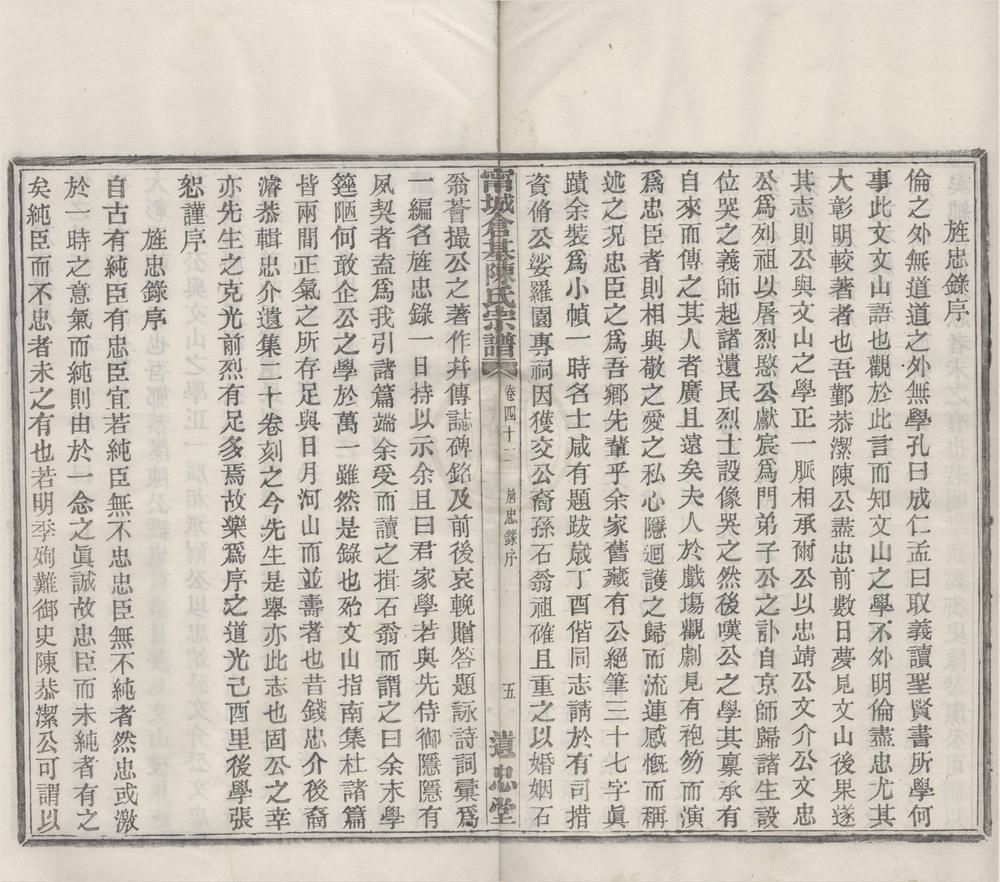 旌忠錄序
倫之外無道道之外無學孔曰成仁孟曰取義讀聖賢書所學何
事此文文山語也觀於此言而知文山之學不外明倫盡忠尤其
大彰明較著者也吾鄞恭潔陳公盡忠前數日夢見文山後果遂
其志則公與文山之學正一脈相承爾公以忠靖公文介公文忠
公爲列祖以屠烈愍公獻宸爲門弟子公之訃自京師歸諸生設
位哭之義師起諸遺民烈士設像哭之然後嘆公之學其禀承有
自來而傳之其人者廣且遠矣夫人於戲塲觀劇見有袍笏而演
爲忠臣者則相與敬之愛之私心隱迴護之歸而流連感慨而稱
述之况忠臣之爲吾鄉先輩乎余家舊藏有公絕筆三十七字眞
蹟余裝爲小幀一時名士咸有題跋嵗丁酉偕同志請於有司措
資脩公娑羅園專祠因獲交公裔孫石翁祖確且重之以婚姻石
甯城倉基陳氏宗譜 卷四十二 旌忠錄序 五 遺忠堂
翁薈撮公之著作幷傳誌碑銘及前後哀輓贈答題詠詩詞彙爲
一編名旌忠錄一日持以示余且曰君家學若與先侍御隱隱有
夙契者盍爲我引諸篇端余受而讀之揖石翁而謂之曰余末學
簉陋何敢企公之學於萬一雖然是錄也殆文山指南集杜諸篇
皆兩間正氣之所存足與日月河山而並壽者也昔錢忠介後裔
濬恭輯忠介遺集二十卷刻之今先生是舉亦此志也固公之幸
亦先生之克光前烈有足多焉故樂爲序之道光己酉里後學張
恕謹序
旌忠錄序
自古有純臣有忠臣宜若純臣無不忠忠臣無不純者然忠或激
於一時之意氣而純則由於一念之眞誠故忠臣而未純者有之
矣純臣而不忠者未之有也若明季殉難御史陳恭潔公可謂以